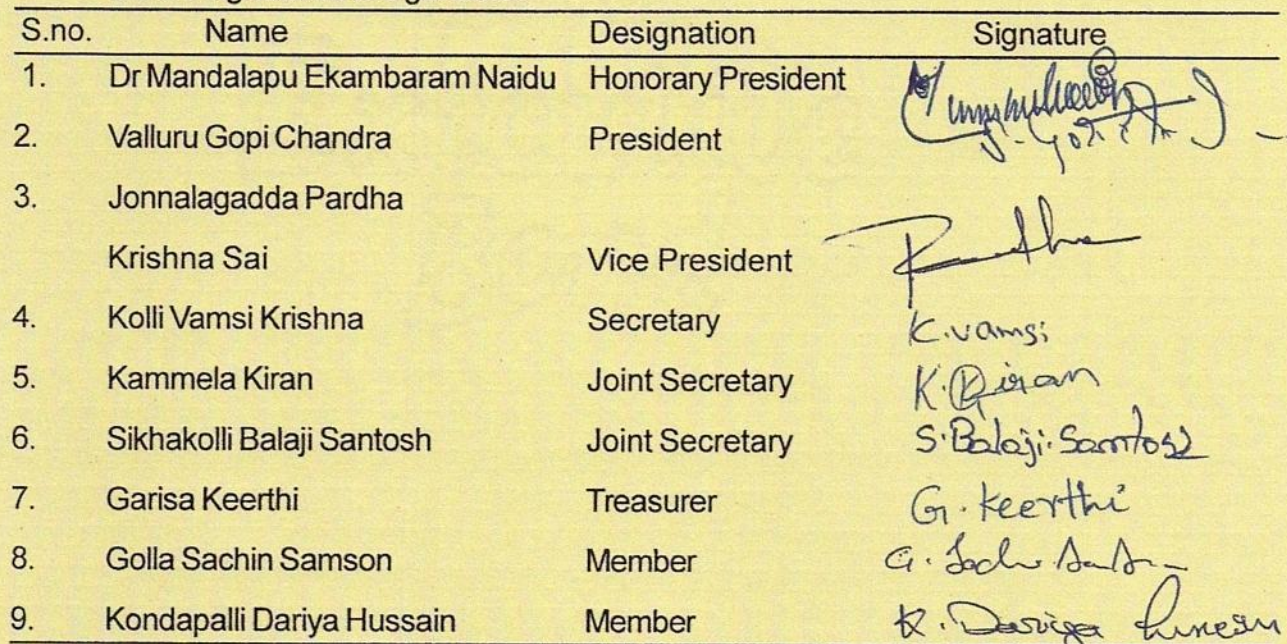 S.no. Name Designation Signature
1. Dr Mandalapu Ekambaram Naidu Honorary President
2. Valluru Gopi Chandra President
3. Jonnalagadda Pardha
Krishna Sai Vice President
4. Kolli Vamsi Krishna Secretary K.vamsi
5. Kammela Kiran Joint Secretary K.Kiran
6. Sikhakolli Balaji Santosh Joint Secretary S.Balaji.Santosh
7. Garisa Keerthi Treasurer G.Keerthi
8. Golla Sachin Samson Member
9. Kondapalli Dariya Hussain Member K. Dariya